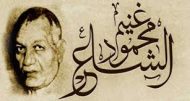 الشاعر
محمود غنيم